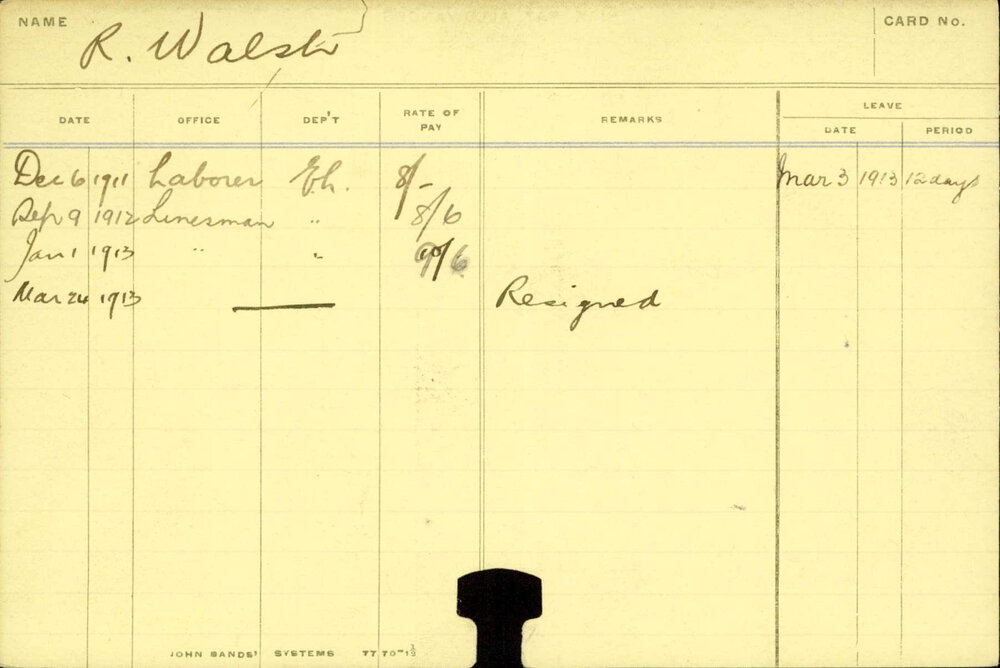 NAME R. Walsh CARD No.
LEAVE
DATE OFFICE DEP'T RATE OF PAY REMARKS DATE PERIOD
Dec 6 1911 Laborer Eh. 8/- Mar 3 1913 12 days
Sep 9 1912 Linesman " 8/6
Jan 1 1913 " "
Mar 24 1913 — Resigned
JOHN SANDS' SYSTEMS